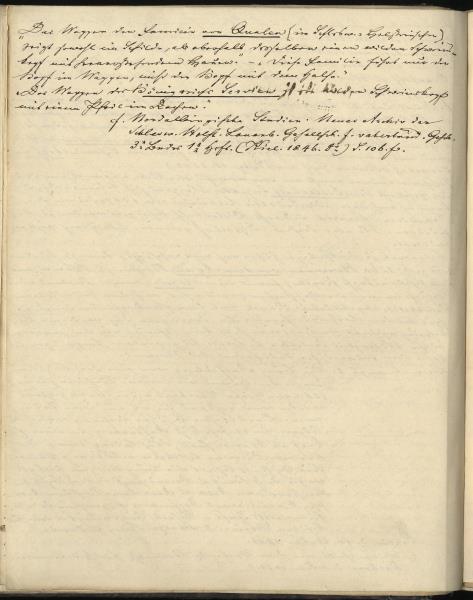 Das Wappen der Familie von Qualen (im Schlesw.-Holsteinischen)
"zeigt sowohl im Schilde, als oberhalb desselben einen wilden Schweins-
kopf mit hervorstehenden Hauern". – Diese Familie führt nur den
Kopf im Wappen, nicht den Kopf mit dem Halse.
"Das Wappen des Königreichs Servien ist ein wilder Schweinskopf
mit einem Pfeil im Rachen".
cf. Nordalbingische Studien. Neues Archiv der
Schlesw. Holst. Lauenb. Gesellsch. f. vaterländ. Gesch.
3n Bandes 1s Heft. (Kiel. 1846. 8o) S. 106. f.